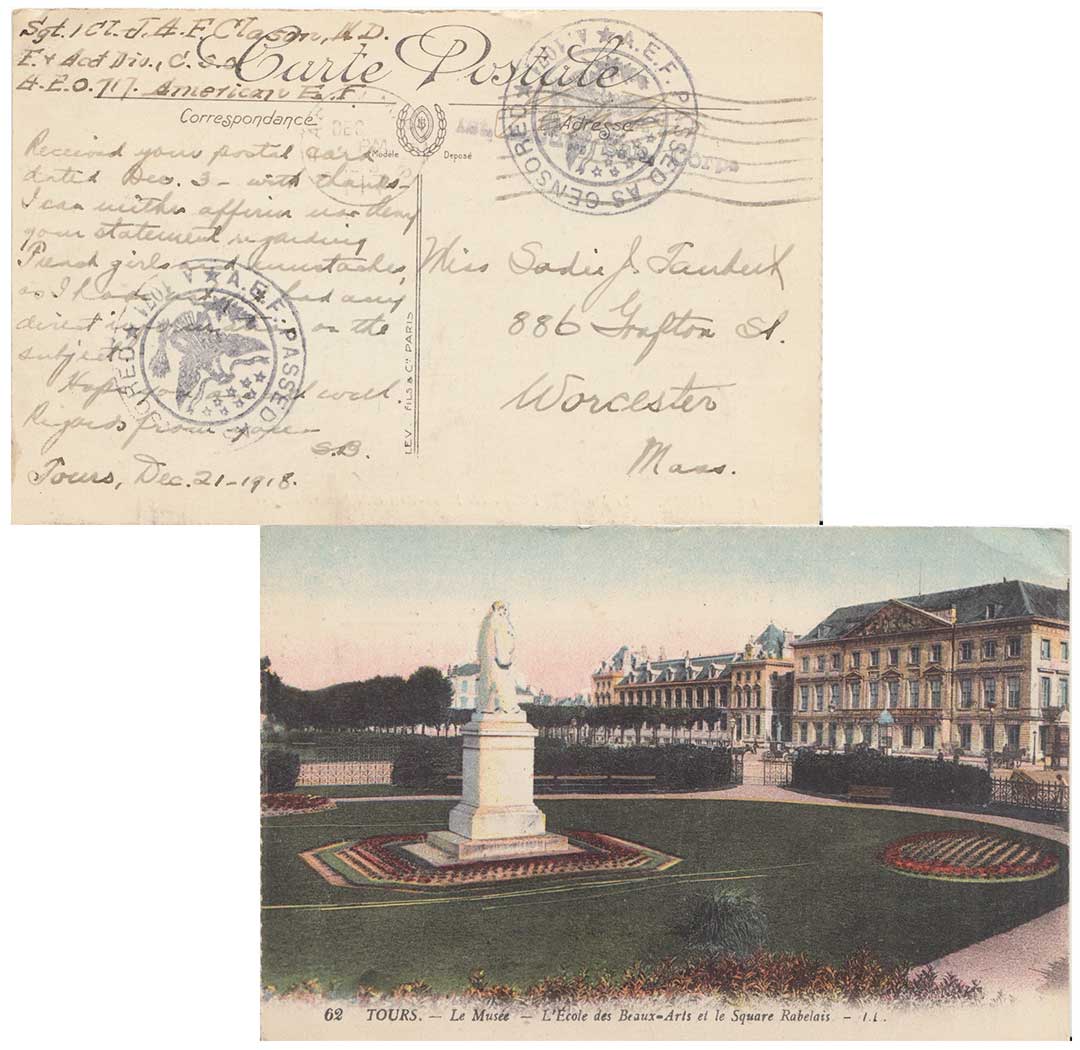 Sgt. 1 Cl. J. A. F. Clason, M.D.
Carte Postale
F. & Acct Div., C.S.O.
A.P.O. 717. American E.F.
Correspondance
Modèle Déposé
Adresse
DEC
Corps
A.E.F. PASSED AS CENSORED
Received your postal card
dated Dec. 3 - with thanks -
I can neither affirm nor deny
your statement regarding
French girls and mustaches,
as I have had any
direct on the
subject
Hope you well.
Regards from yore -
S.B.
Tours, Dec. 21 - 1918.
A.E.F. PASSED
LEV. FILS & Cie PARIS
Miss Sadie J.
886 Grafton St.
Worcester
Mass.
62 TOURS. — Le Musée — L'École des Beaux-Arts et le Square Rabelais. — LL.